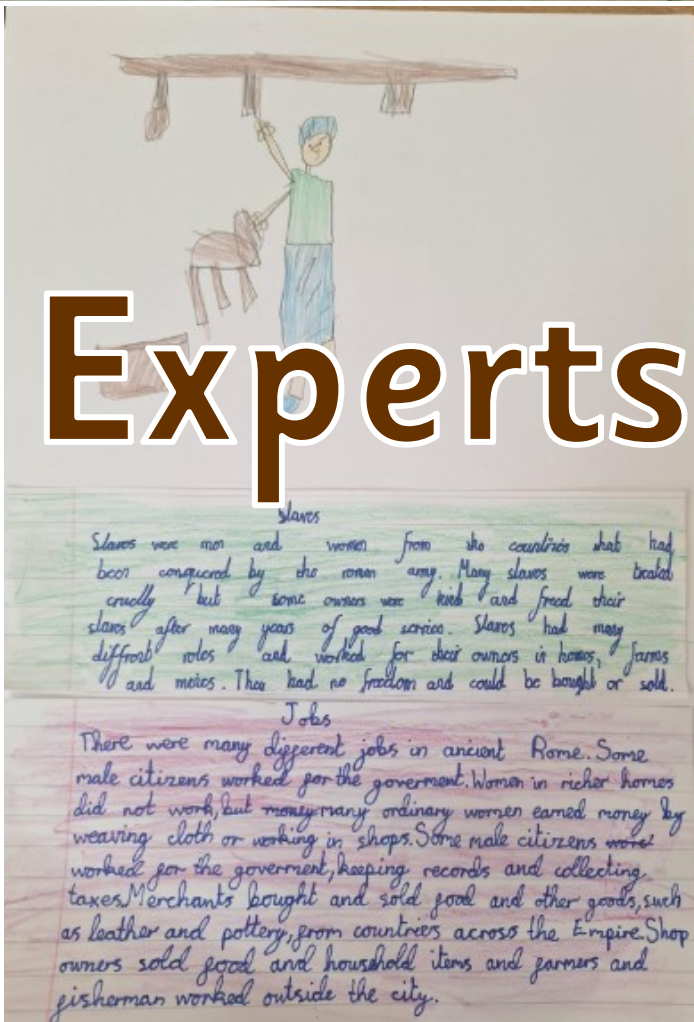 Experts
Slaves
Slaves were men and women from the countries that had
been conquered by the roman army. Many slaves were treated
cruelly but some owners were kind and freed their
slaves after many years of good service. Slaves had many
diffrent roles and worked for their owners in homes, farms
and mines. They had no freedom and could be bought or sold.
Jobs
There were many different jobs in ancient Rome. Some
male citizens worked for the goverment. Women in richer homes
did not work, but money many ordinary women earned money by
weaving cloth or working in shops. Some male citizens
worked for the goverment, keeping records and collecting
taxes. Merchants bought and sold food and other goods, such
as leather and pottery, from countries across the Empire. Shop
owners sold food and household items and farmers and
fisherman worked outside the city.